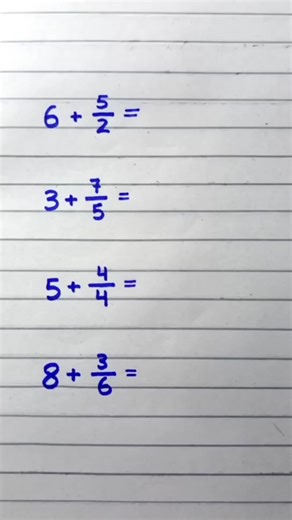 6 + 5/2 =
3 + 7/5 =
5 + 4/4 =
8 + 3/6 =